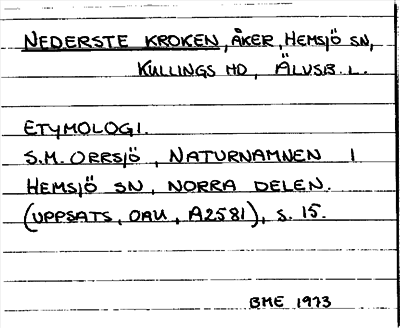 NEDERSTE KROKEN, ÅKER, HEMSJÖ SN,
KULLINGS HD, ÄLVSB. L.
ETYMOLOGI.
S.M. ORRSJÖ, NATURNAMNEN I
HEMSJÖ SN, NORRA DELEN.
(UPPSATS, OAU, A2581), S. 15.
BME 1973